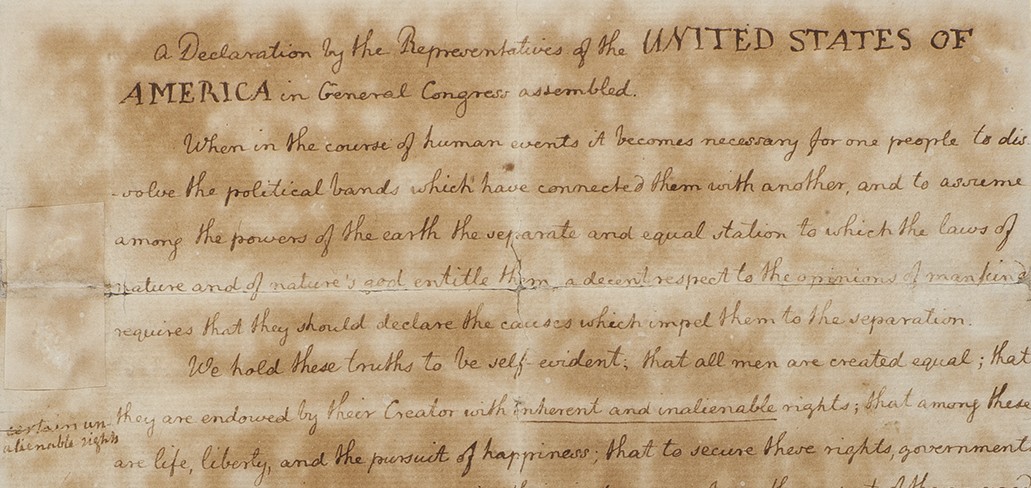 a Declaration by the Representatives of the UNITED STATES OF
AMERICA in General Congress assembled.
When in the course of human events it becomes necessary for one people to dis
-solve the political bands which have connected them with another, and to assume
among the powers of the earth the separate and equal station to which the laws of
nature and of nature's god entitle them, a decent respect to the opinions of mankind
requires that they should declare the causes which impel them to the separation.
We hold these truths to be self evident; that all men are created equal; that
they are endowed by their Creator with inherent and inalienable rights; that among these
certain un-
alienable rights
are life, liberty, and the pursuit of happiness; that to secure these rights, governments